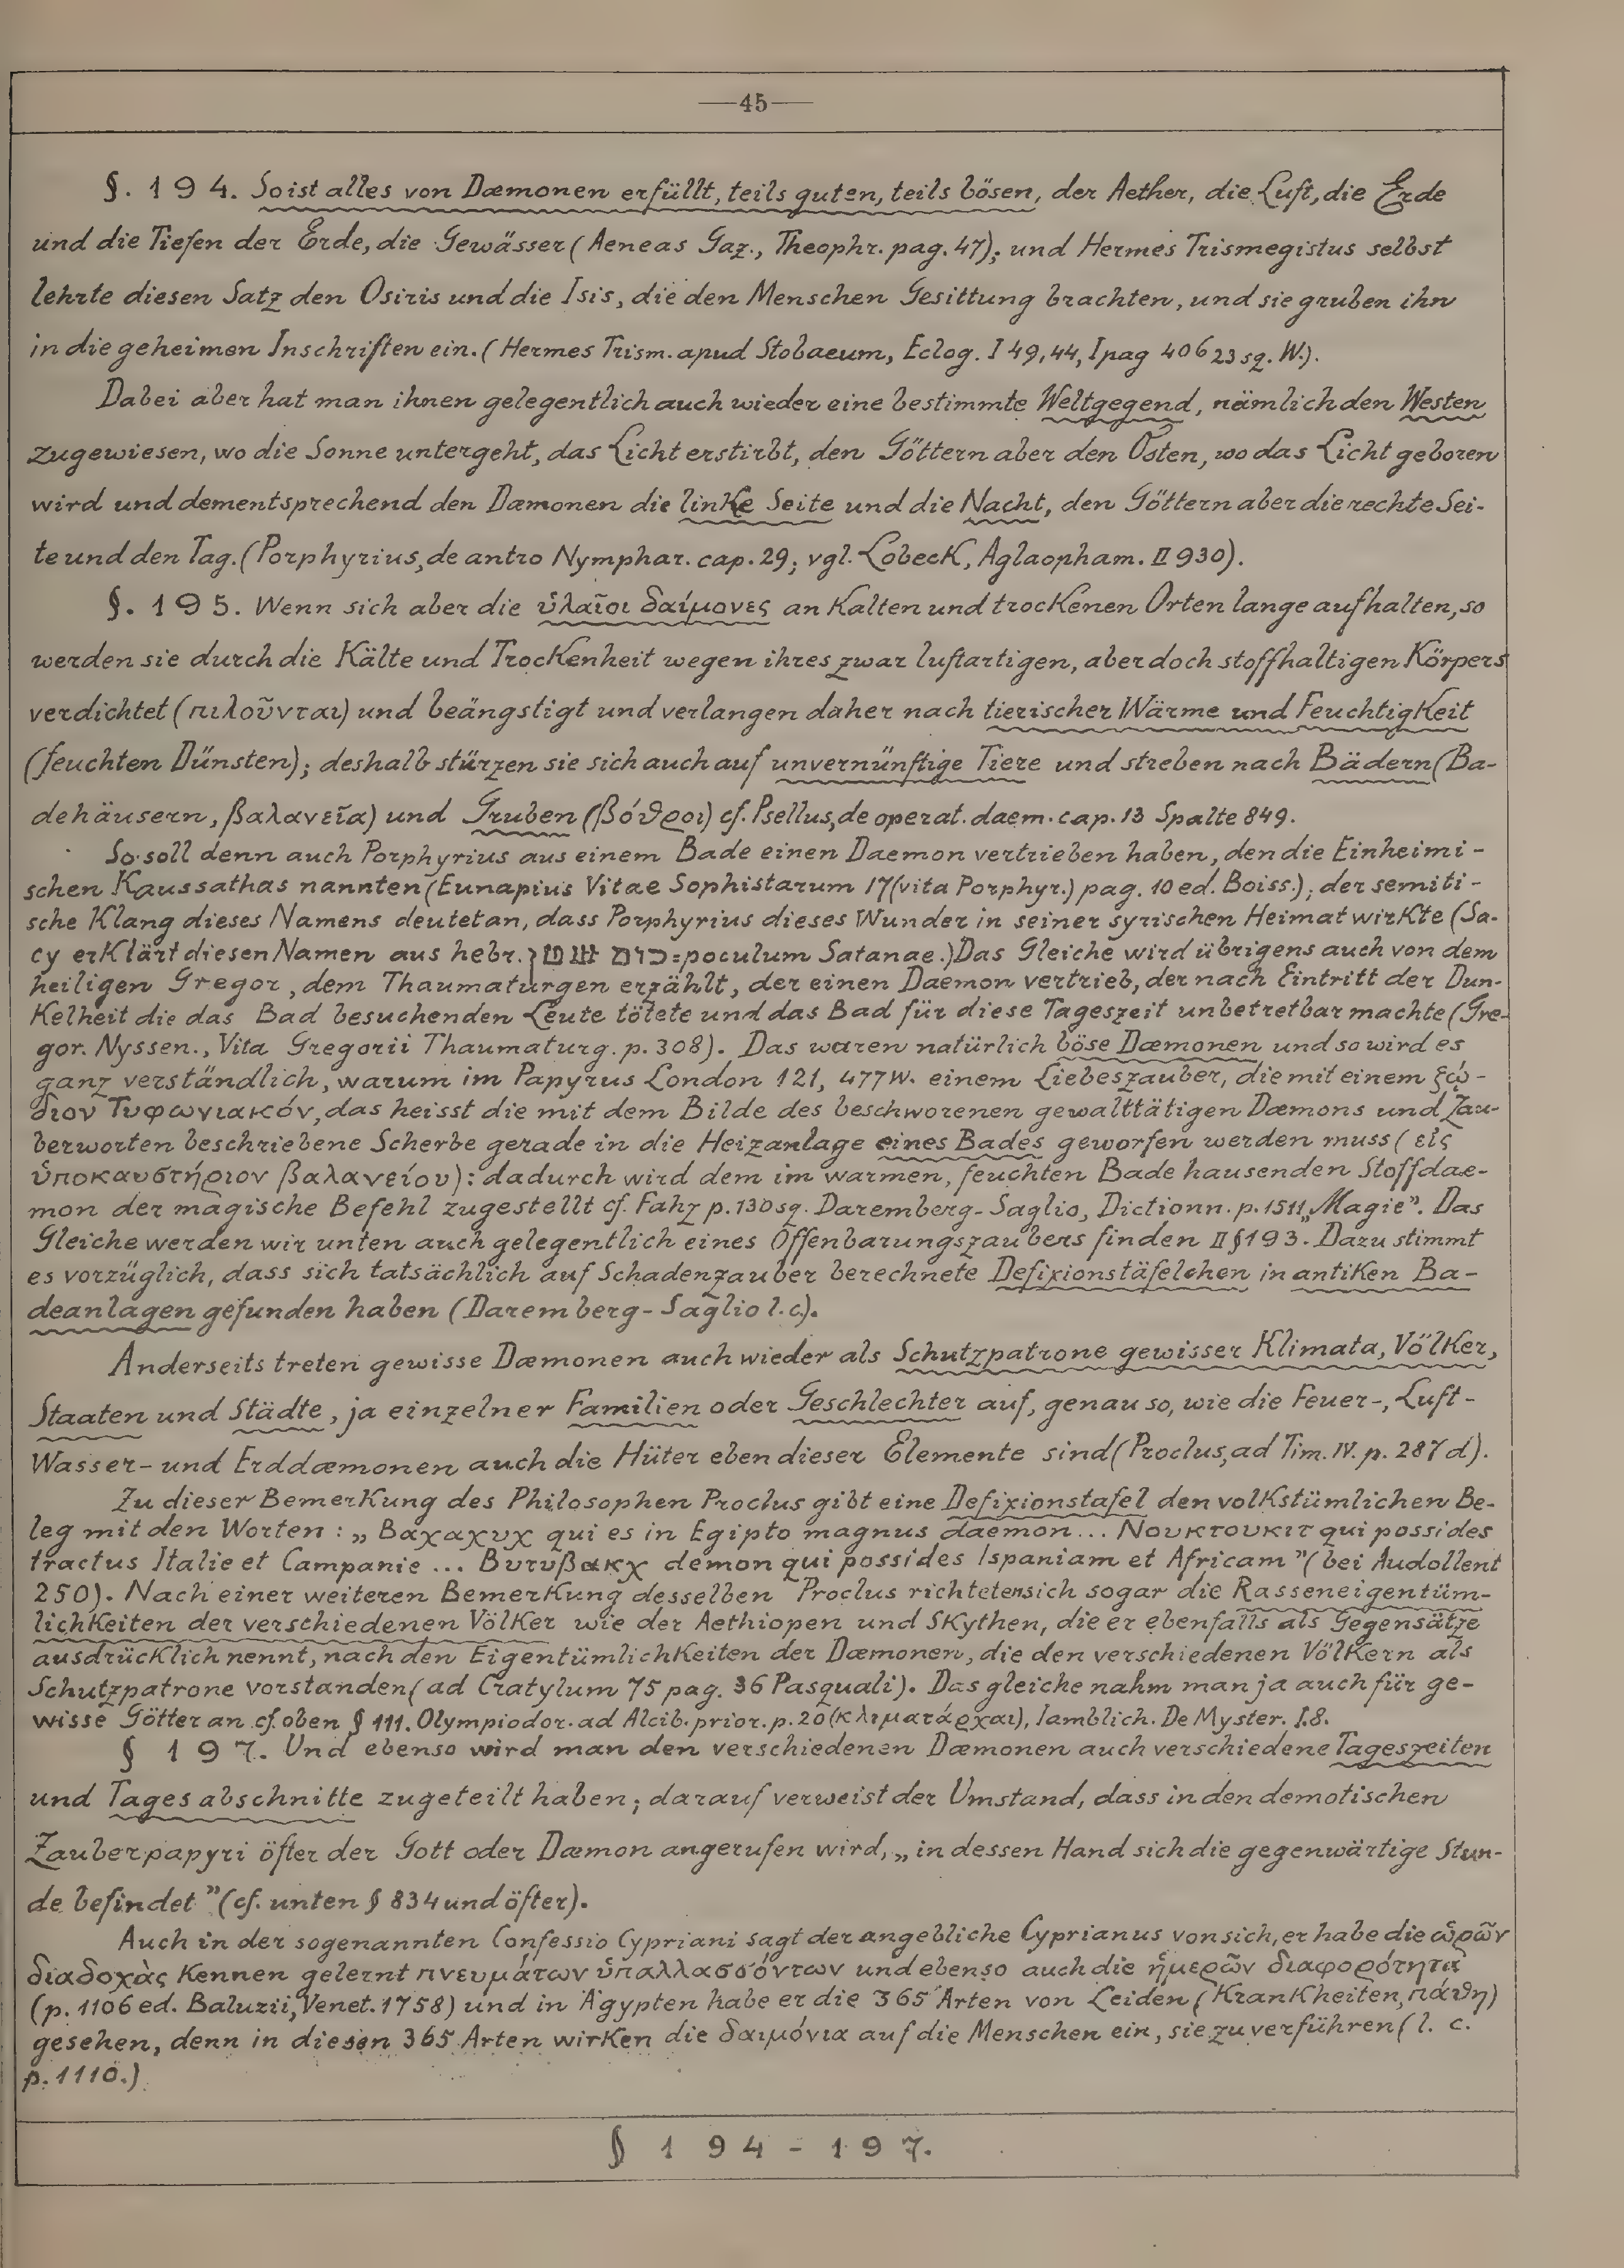 —45—
§. 194. So ist alles von Dæmonen erfüllt, teils guten, teils bösen, der Aether, die Luft, die Erde
und die Tiefen der Erde, die Gewässer (Aeneas Gaz., Theophr. pag. 47); und Hermes Trismegistus selbst
lehrte diesen Satz den Osiris und die Isis, die den Menschen Gesittung brachten, und sie gruben ihn
in die geheimen Inschriften ein. (Hermes Trism. apud Stobaeum, Eclog. I 49, 44, I pag 406 23 sq. W.).
Dabei aber hat man ihnen gelegentlich auch wieder eine bestimmte Weltgegend, nämlich den Westen
zugewiesen, wo die Sonne untergeht, das Licht erstirbt, den Göttern aber den Osten, wo das Licht geboren
wird und dementsprechend den Dæmonen die linke Seite und die Nacht, den Göttern aber die rechte Sei-
te und den Tag. (Porphyrius, de antro Nymphar. cap. 29; vgl. Lobeck, Aglaopham. II 930).
§. 195. Wenn sich aber die ὑλαῖοι δαίμονες an kalten und trockenen Orten lange aufhalten, so
werden sie durch die Kälte und Trockenheit wegen ihres zwar luftartigen, aber doch stoffhaltigen Körpers
verdichtet (πιλοῦνται) und beängstigt und verlangen daher nach tierischer Wärme und Feuchtigkeit
(feuchten Dünsten); deshalb stürzen sie sich auch auf unvernünftige Tiere und streben nach Bädern (Ba-
dehäusern, βαλανεῖα) und Gruben (βόθροι) cf. Psellus, de operat. daem. cap. 13 Spalte 849.
So soll denn auch Porphyrius aus einem Bade einen Daemon vertrieben haben, den die Einheimi-
schen Kaussathas nannten (Eunapius Vitae Sophistarum 17 (vita Porphyr.) pag. 10 ed. Boiss.); der semiti-
sche Klang dieses Namens deutet an, dass Porphyrius dieses Wunder in seiner syrischen Heimat wirkte (Sa-
cy erklärt diesen Namen aus hebr. =poculum Satanae.) Das Gleiche wird übrigens auch von dem
heiligen Gregor, dem Thaumaturgen erzählt, der einen Daemon vertrieb, der nach Eintritt der Dun-
kelheit die das Bad besuchenden Leute tötete und das Bad für diese Tageszeit unbetretbar machte (Gre-
gor. Nyssen., Vita Gregorii Thaumaturg. p. 308). Das waren natürlich böse Dæmonen und so wird es
ganz verständlich, warum im Papyrus London 121, 477 W. einem Liebeszauber, die mit einem ζῴ-
διον Τυφωνιακόν, das heisst die mit dem Bilde des beschworenen gewalttätigen Dæmons und Zau-
berworten beschriebene Scherbe gerade in die Heizanlage eines Bades geworfen werden muss (εἰς
ὑποκαυστήριον βαλανείου): dadurch wird dem im warmen, feuchten Bade hausenden Stoffdae-
mon der magische Befehl zugestellt cf. Fahz p. 130 sq. Daremberg-Saglio, Dictionn. p. 1511 „Magie”. Das
Gleiche werden wir unten auch gelegentlich eines Offenbarungszaubers finden II § 193. Dazu stimmt
es vorzüglich, dass sich tatsächlich auf Schadenzauber berechnete Defixionstäfelchen in antiken Ba-
deanlagen gefunden haben (Daremberg-Saglio l. c.).
Anderseits treten gewisse Dæmonen auch wieder als Schutzpatrone gewisser Klimata, Völker,
Staaten und Städte, ja einzelner Familien oder Geschlechter auf, genau so, wie die Feuer-, Luft-
Wasser- und Erddæmonen auch die Hüter eben dieser Elemente sind (Proclus, ad Tim. IV. p. 287 d).
Zu dieser Bemerkung des Philosophen Proclus gibt eine Defixionstafel den volkstümlichen Be-
leg mit den Worten: „Βαχαχυχ qui es in Egipto magnus daemon... Νουκτουκιτ qui possides
tractus Italie et Campanie ... Βυτυβαχχ demon qui possides Ispaniam et Africam” (bei Audollent
250). Nach einer weiteren Bemerkung desselben Proclus richteten sich sogar die Rasseneigentüm-
lichkeiten der verschiedenen Völker wie der Aethiopen und Skythen, die er ebenfalls als Gegensätze
ausdrücklich nennt, nach den Eigentümlichkeiten der Dæmonen, die den verschiedenen Völkern als
Schutzpatrone vorstanden (ad Cratylum 75 pag. 36 Pasquali). Das gleiche nahm man ja auch für ge-
wisse Götter an cf. oben § 111. Olympiodor. ad Alcib. prior. p. 20 (κλιματάρχαι), Iamblich. De Myster. I.8.
§ 197. Und ebenso wird man den verschiedenen Dæmonen auch verschiedene Tageszeiten
und Tagesabschnitte zugeteilt haben; darauf verweist der Umstand, dass in den demotischen
Zauberpapyri öfter der Gott oder Dæmon angerufen wird, „in dessen Hand sich die gegenwärtige Stun-
de befindet” (cf. unten § 834 und öfter).
Auch in der sogenannten Confessio Cypriani sagt der angebliche Cyprianus von sich, er habe die ὡρῶν
διαδοχὰς kennen gelernt πνευμάτων ὑπαλλασσόντων und ebenso auch die ἡμερῶν διαφορότητα
(p. 1106 ed. Baluzii, Venet. 1758) und in Ägypten habe er die 365 Arten von Leiden (Krankheiten, πάθη)
gesehen, denn in diesen 365 Arten wirken die δαιμόνια auf die Menschen ein, sie zu verführen (l. c.
p. 1110.)
§ 194-197.